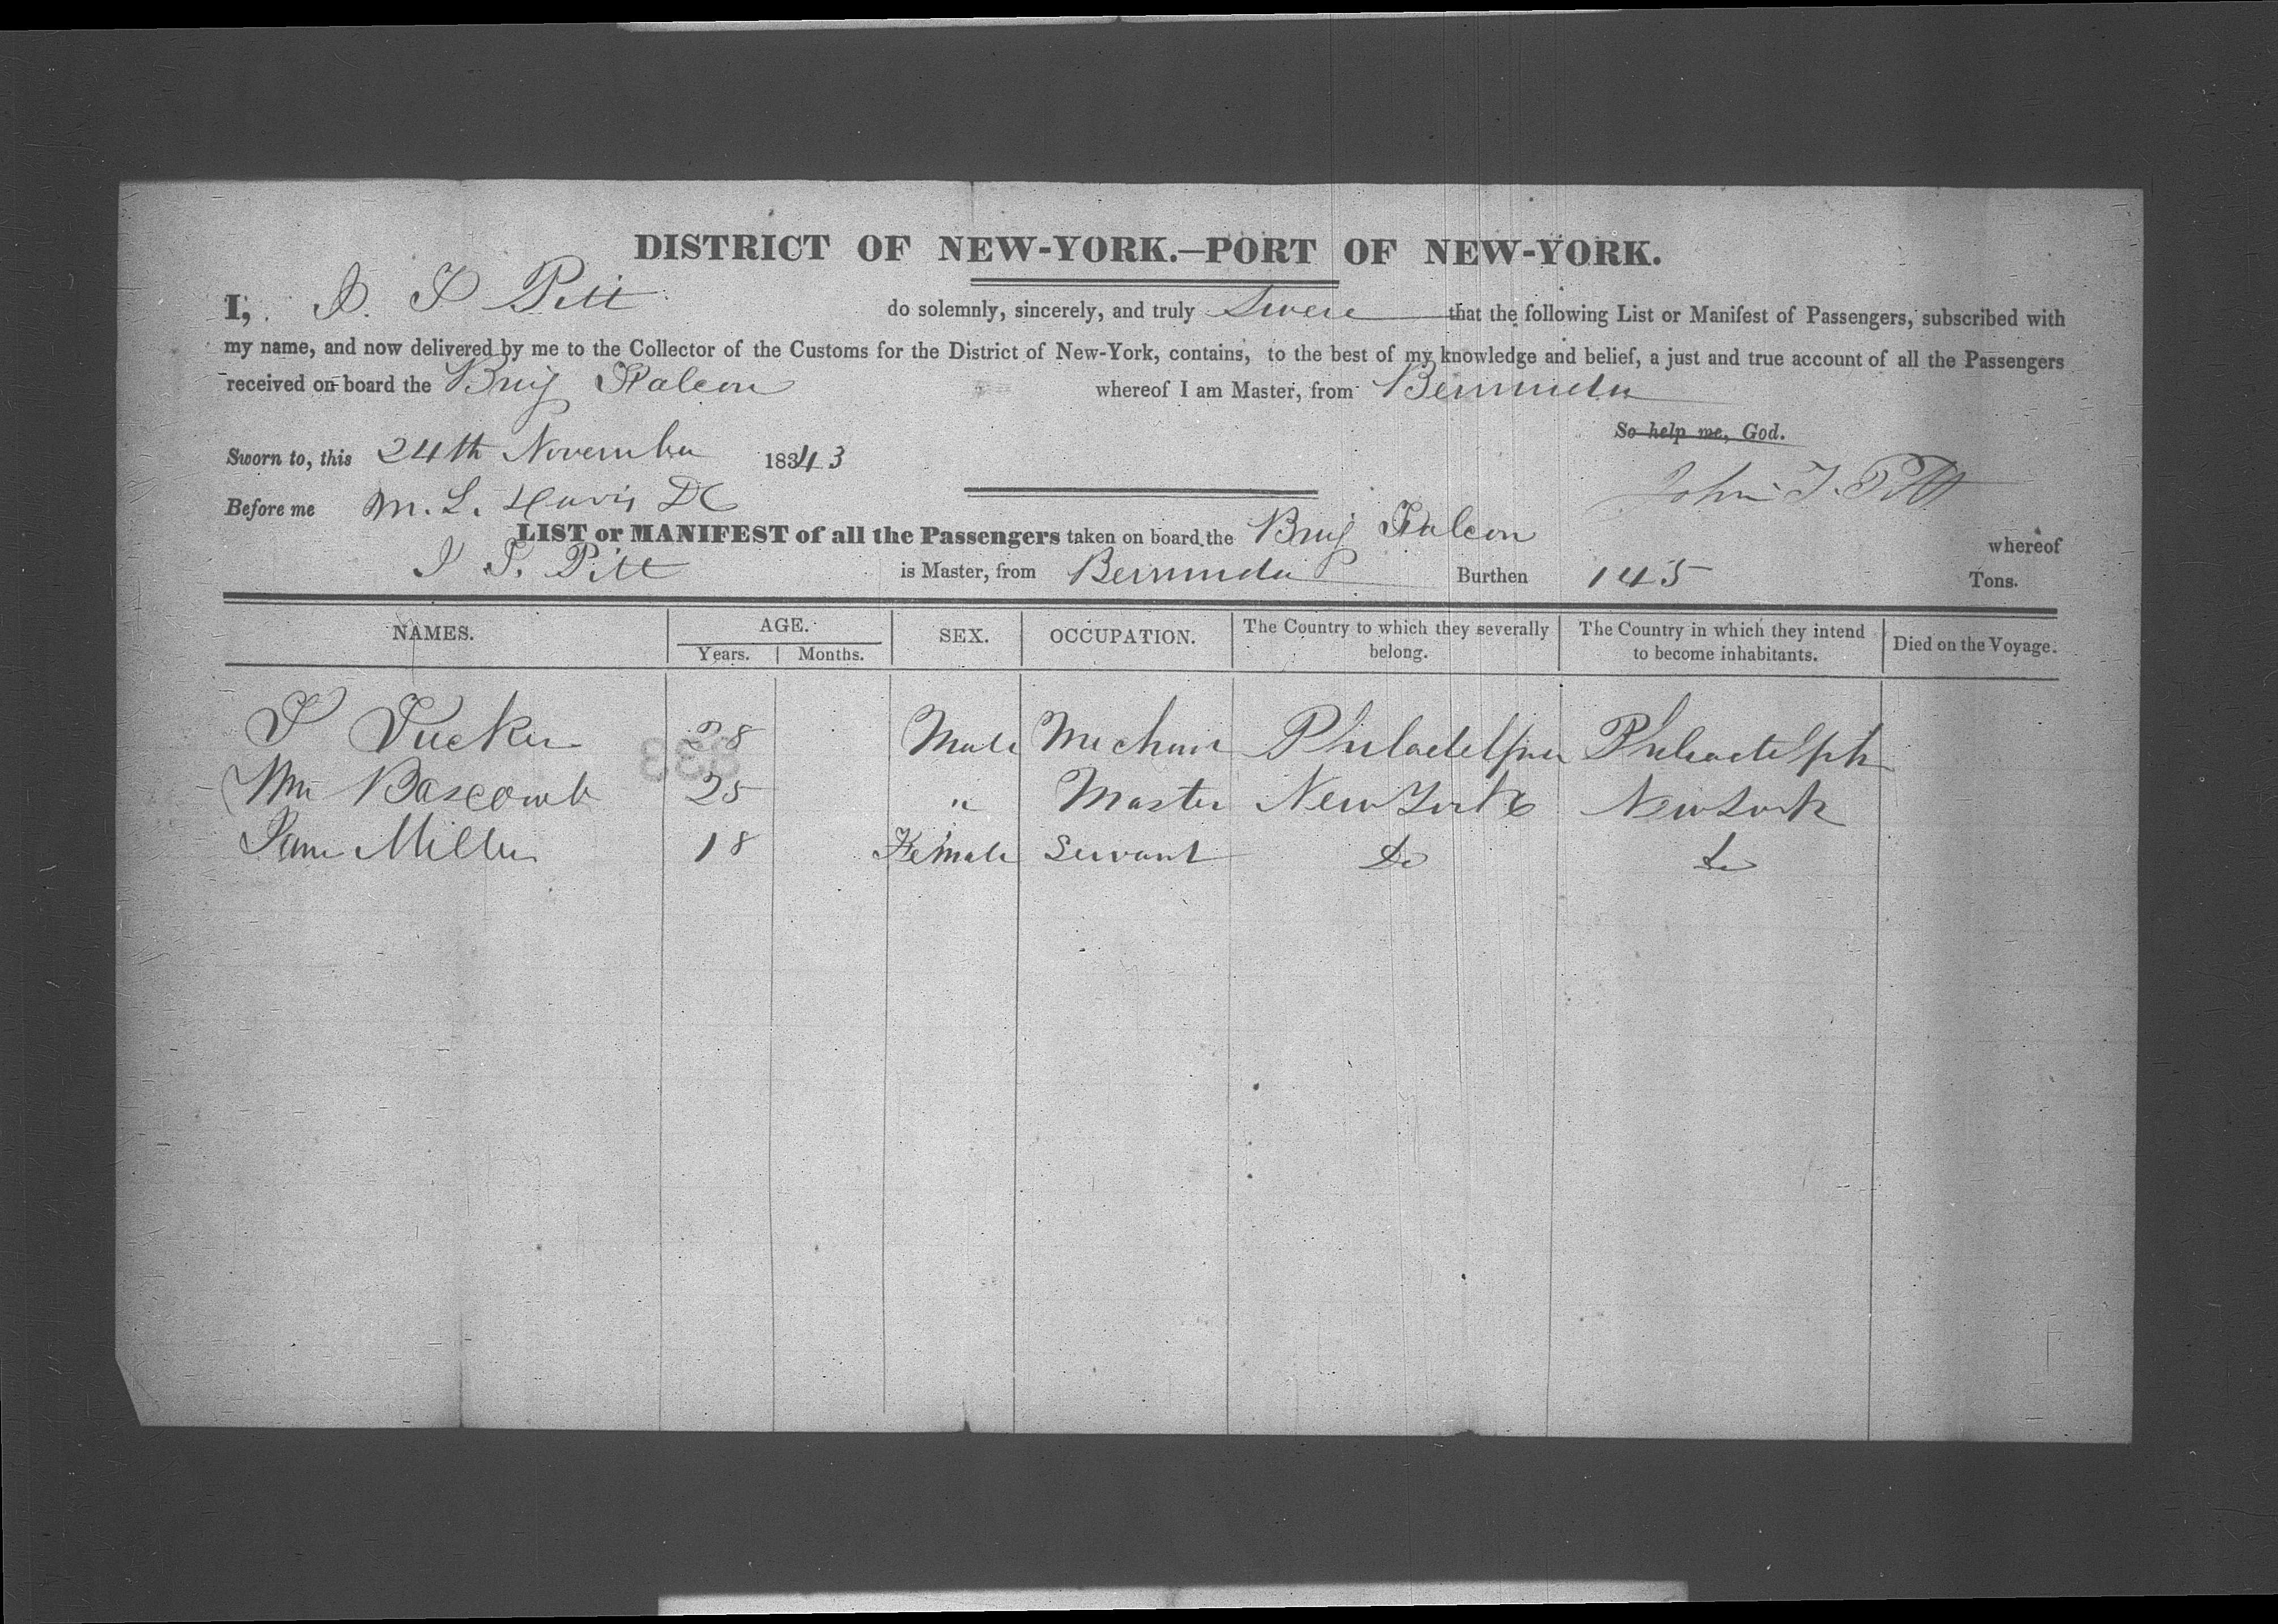 DISTRICT OF NEW-YORK.—PORT OF NEW-YORK.
I, J. T Pitt do solemnly, sincerely, and truly Swear that the following List or Manifest of Passengers, subscribed with
my name, and now delivered by me to the Collector of the Customs for the District of New-York, contains, to the best of my knowledge and belief, a just and true account of all the Passengers
received on board the Brig Falcon whereof I am Master, from Bermuda
So help me, God.
Sworn to, this 24th November 1843
John T. Pitt
Before me M. L. Davis DC
LIST or MANIFEST of all the Passengers taken on board the Brig Falcon whereof
J T. Pitt is Master, from Bermuda Burthen 145 Tons.
NAMES. AGE. SEX. OCCUPATION. The Country to which they severally belong. The Country in which they intend to become inhabitants. Died on the Voyage.
Years. Months.
T Tucker 28 Male Mechanic Philadelphia Philadelph
Wm Bascomb 25 " Master New York New York
Jane Miller 18 Female Servant Do Do
333